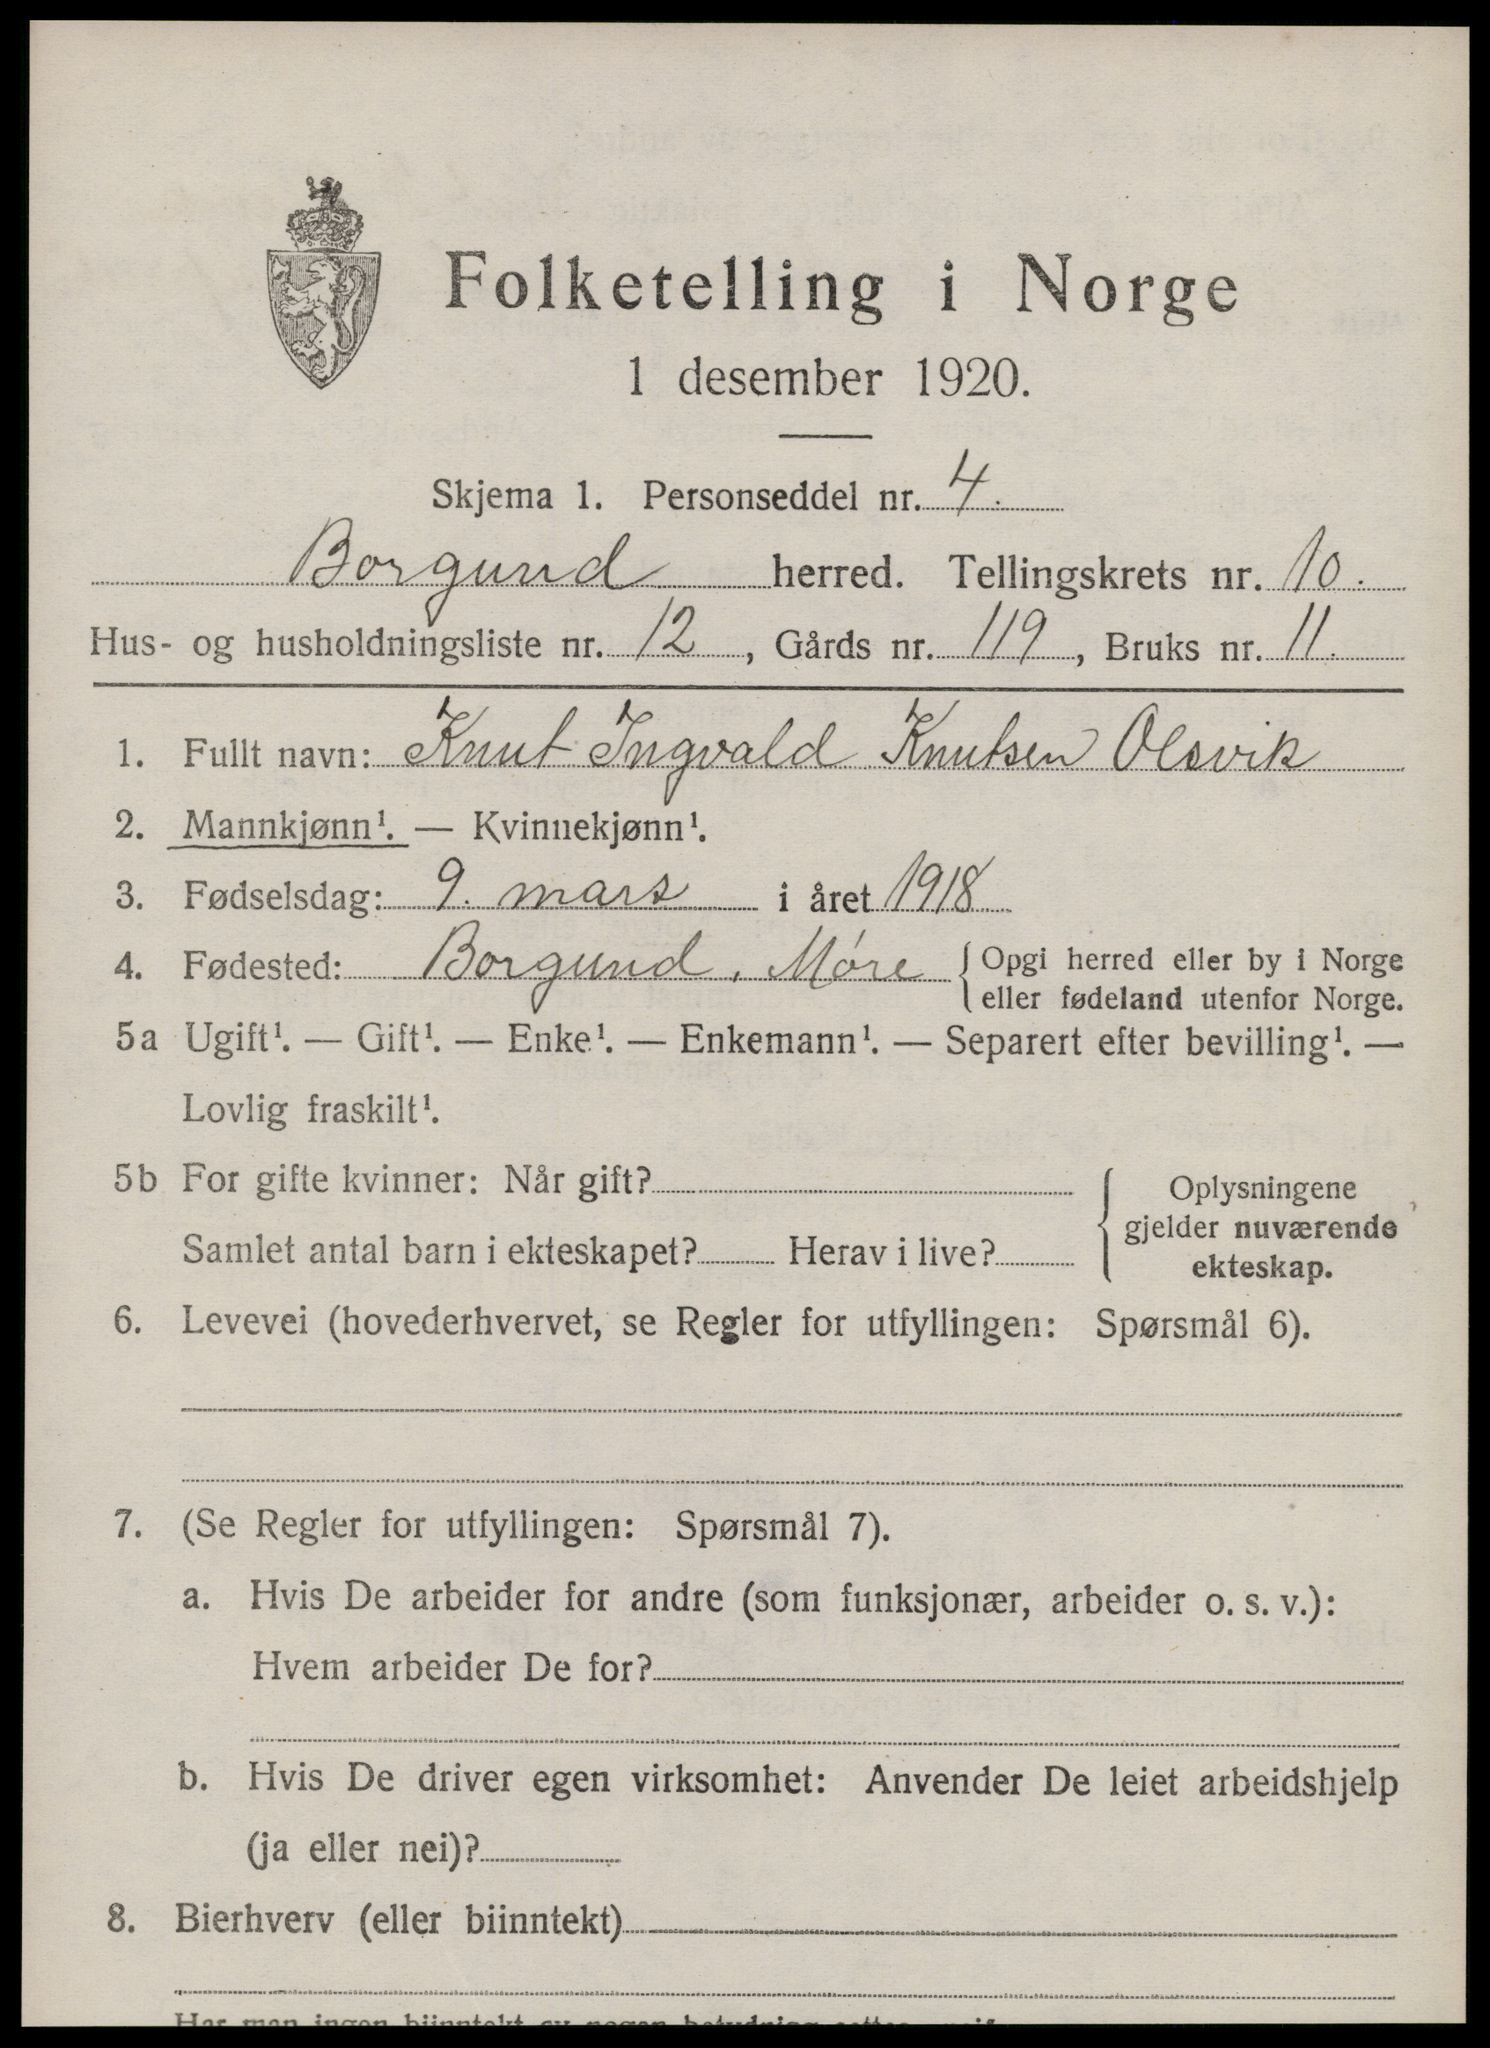 Folketelling i Norge
1 desember 1920.
Skjema 1. Personseddel nr. 4.
Borgund herred. Tellingskrets nr. 10.
Hus- og husholdningsliste nr. 12, Gårds nr. 119, Bruks nr. 11.
1. Fullt navn: Knut Ingvald Knutsen Olsvik
2. Mannkjønn¹. — Kvinnekjønn¹.
3. Fødselsdag: 9. mars i året 1918
4. Fødested: Borgund, Møre { Opgi herred eller by i Norge
eller fødeland utenfor Norge.
5a Ugift¹. — Gift¹. — Enke¹. — Enkemann¹. — Separert efter bevilling¹. —
Lovlig fraskilt¹.
5b For gifte kvinner: Når gift?
Samlet antal barn i ekteskapet? Herav i live?
{ Oplysningene
gjelder nuværende
ekteskap.
6. Levevei (hovederhvervet, se Regler for utfyllingen: Spørsmål 6).
7. (Se Regler for utfyllingen: Spørsmål 7).
a. Hvis De arbeider for andre (som funksjonær, arbeider o. s. v.):
Hvem arbeider De for?
b. Hvis De driver egen virksomhet: Anvender De leiet arbeidshjelp
(ja eller nei)?
8. Bierhverv (eller biinntekt)
Har man ingen biinntekt av nogen betydning settes